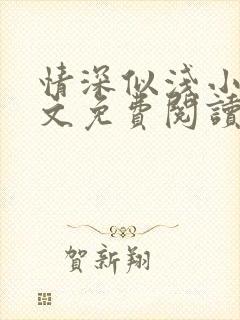 情深似淺小
文免費閱讀
賀新翔